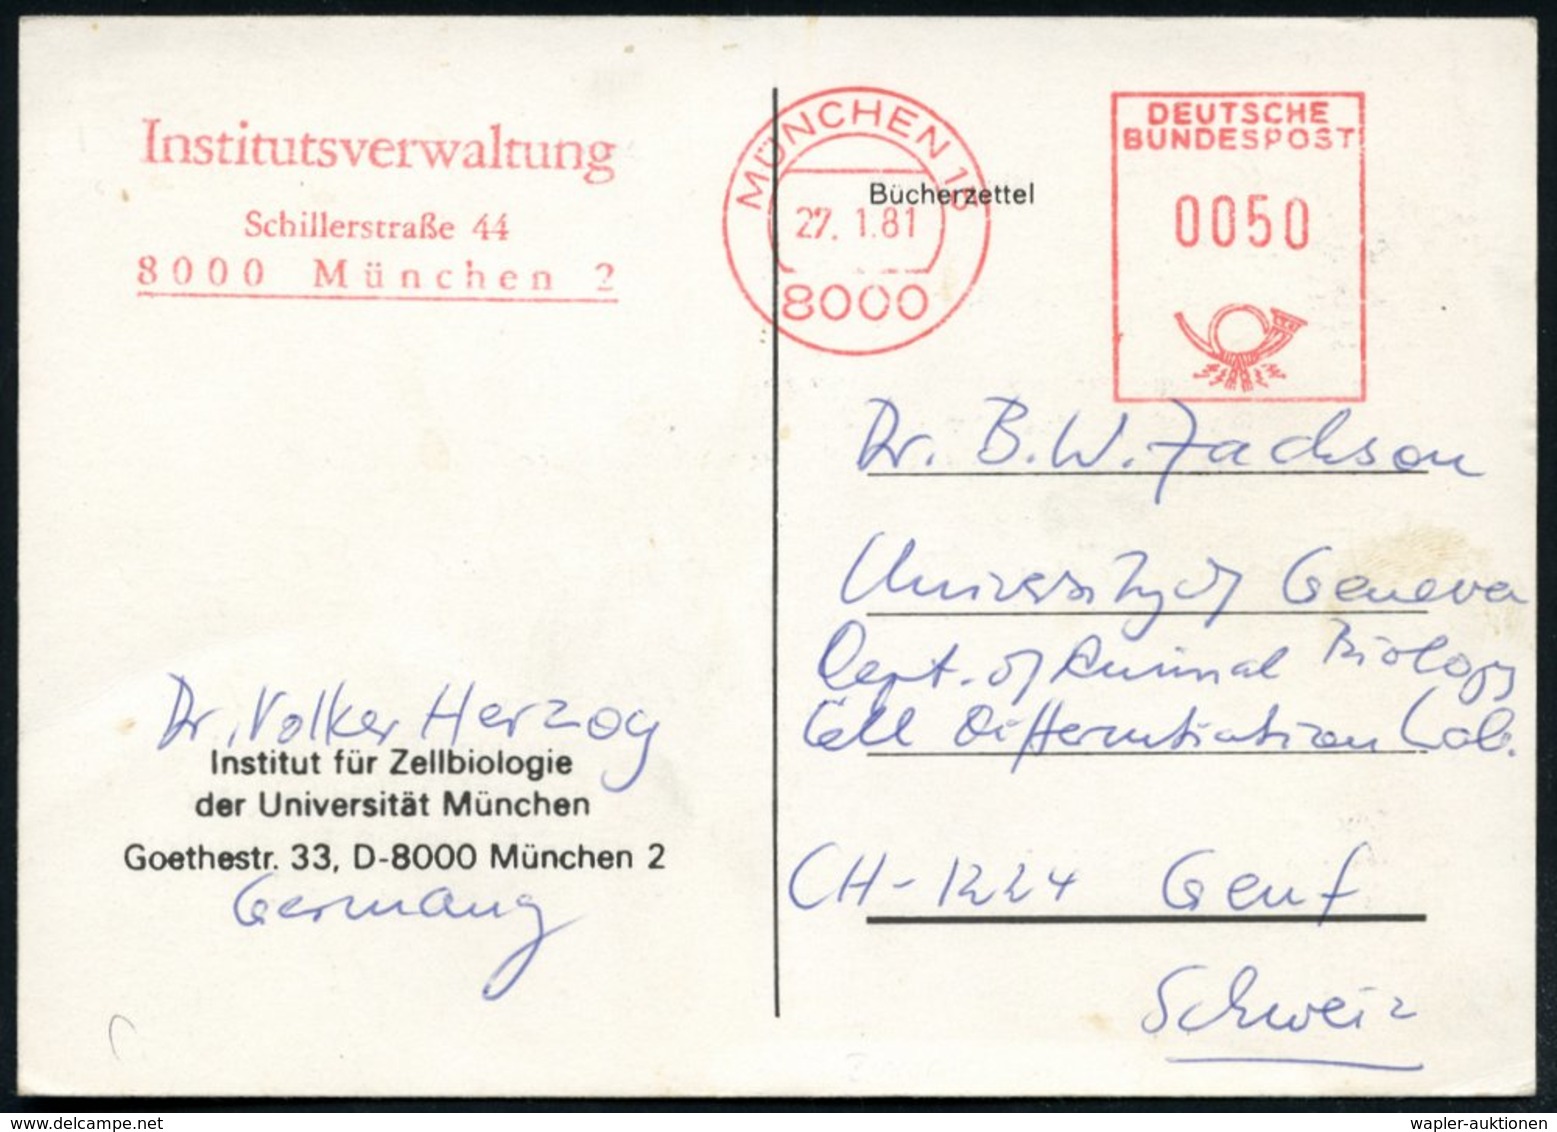 Institutsverwaltung
Schillerstraße 44
8000 München 2
MÜNCHEN 15
27. 1.81
8000
Bücherzettel
DEUTSCHE
BUNDESPOST
0050
Dr. B. W. Jackson
University of Geneva
Dept. of Animal Biology
Cell Differentiation Lab.
CH-1224 Genf
Schweiz
Dr. Volker Herzog
Institut für Zellbiologie
der Universität München
Goethestr. 33, D-8000 München 2
Germany
wapler-auktionen